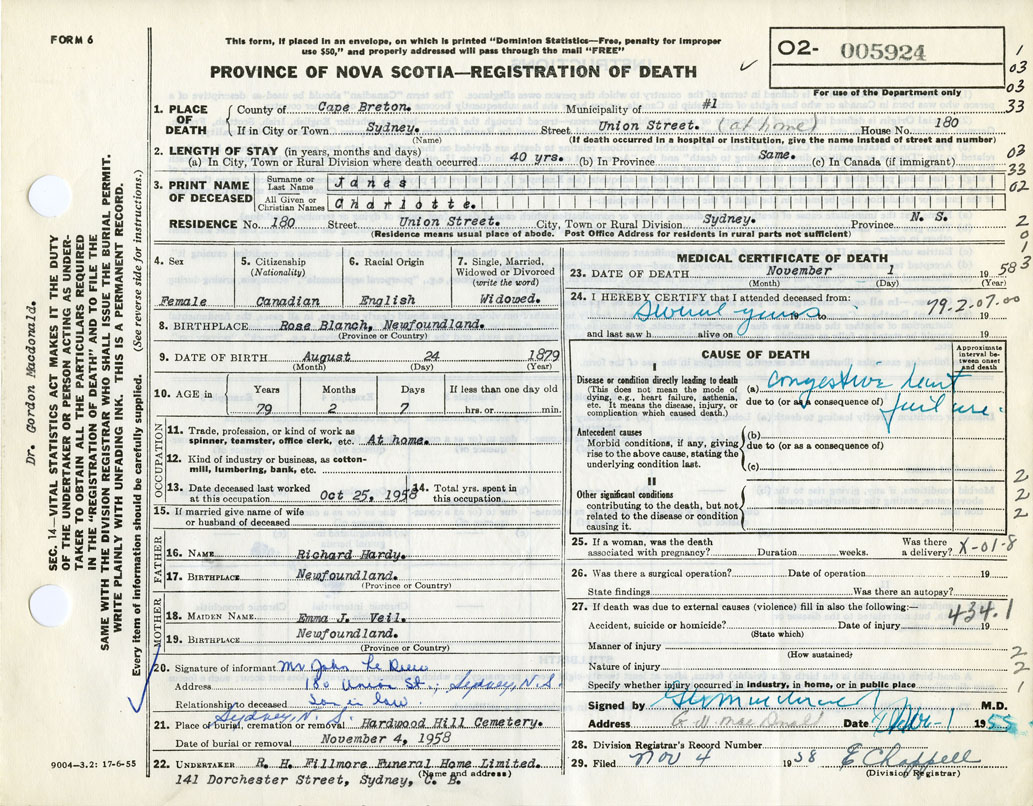 FORM 6
This form, if placed in an envelope, on which is printed "Dominion Statistics—Free, penalty for improper
use $50," and properly addressed will pass through the mail "FREE"
PROVINCE OF NOVA SCOTIA—REGISTRATION OF DEATH
02- 005924
For use of the Department only
1
03
03
33
03
33
02
2
0
1
3
1. PLACE OF DEATH
County of Cape Breton. Municipality of #1
If in City or Town Sydney. Street Union Street. (at home) House No. 180
(Name) (If death occurred in a hospital or institution, give the name instead of street and number)
2. LENGTH OF STAY (in years, months and days)
(a) In City, Town or Rural Division where death occurred 40 yrs. (b) In Province Same. (c) In Canada (if immigrant)
3. PRINT NAME OF DECEASED
Surname or Last Name Janes
All Given or Christian Names Charlotte.
RESIDENCE No. 180 Street Union Street. City, Town or Rural Division Sydney. Province N. S.
(Residence means usual place of abode. Post Office Address for residents in rural parts not sufficient)
4. Sex
Female
5. Citizenship
(Nationality)
Canadian
6. Racial Origin
English
7. Single, Married,
Widowed or Divorced
(write the word)
Widowed.
8. BIRTHPLACE Rose Blanch, Newfoundland.
(Province or Country)
9. DATE OF BIRTH August 24 1879
(Month) (Day) (Year)
10. AGE in
Years Months Days If less than one day old
79 2 7 hrs. or min.
OCCUPATION
11. Trade, profession, or kind of work as
spinner, teamster, office clerk, etc. At home.
12. Kind of industry or business, as cotton-
mill, lumbering, bank, etc.
13. Date deceased last worked
at this occupation Oct 25, 1958
14. Total yrs. spent in
this occupation
15. If married give name of wife
or husband of deceased
FATHER
16. NAME Richard Hardy.
17. BIRTHPLACE Newfoundland.
(Province or Country)
MOTHER
18. MAIDEN NAME Emma J. Veil.
19. BIRTHPLACE Newfoundland.
(Province or Country)
20. Signature of informant Mr John Le Drew
Address 180 Union St., Sydney, N.S.
Relationship to deceased Son in law
Sydney, N. S.
21. Place of burial, cremation or removal Hardwood Hill Cemetery.
Date of burial or removal November 4, 1958
22. UNDERTAKER R. H. Fillmore Funeral Home Limited.
(Name and address)
141 Dorchester Street, Sydney, C. B.
MEDICAL CERTIFICATE OF DEATH
23. DATE OF DEATH November 1 1958
(Month) (Day) (Year)
24. I HEREBY CERTIFY that I attended deceased from:
Several years to 19
79.2.07.00
and last saw h alive on 19
CAUSE OF DEATH
Approximate
interval be-
tween onset
and death
I
Disease or condition directly leading to death
(This does not mean the mode of
dying, e.g., heart failure, asthenia,
etc. It means the disease, injury, or
complication which caused death.)
(a) Congestive heart
due to (or as a consequence of) failure.
Antecedent causes
Morbid conditions, if any, giving
rise to the above cause, stating the
underlying condition last.
(b)
due to (or as a consequence of)
(c)
II
Other significant conditions
contributing to the death, but not
related to the disease or condition
causing it.
2
2
2
25. If a woman, was the death
associated with pregnancy? Duration weeks. Was there
a delivery? X-01-8
26. Was there a surgical operation? Date of operation 19
State findings Was there an autopsy?
27. If death was due to external causes (violence) fill in also the following:—
434.1
Accident, suicide or homicide? Date of injury 19
(State which)
Manner of injury
(How sustained)
Nature of injury
2
2
1
Specify whether injury occurred in industry, in home, or in public place
Signed by M.D.
Address G. W. MacDonald Date Nov-1 1955
28. Division Registrar's Record Number
29. Filed Nov 4 1958 E Chappell
(Division Registrar)
9004—3.2: 17-6-55
Dr. Gordon Macdonald.
SEC. 14—VITAL STATISTICS ACT MAKES IT THE DUTY
OF THE UNDERTAKER OR PERSON ACTING AS UNDER-
TAKER TO OBTAIN ALL THE PARTICULARS REQUIRED
IN THE "REGISTRATION OF DEATH" AND TO FILE THE
SAME WITH THE DIVISION REGISTRAR WHO SHALL ISSUE THE BURIAL PERMIT.
WRITE PLAINLY WITH UNFADING INK. THIS IS A PERMANENT RECORD.
Every item of information should be carefully supplied. (See reverse side for instructions.)